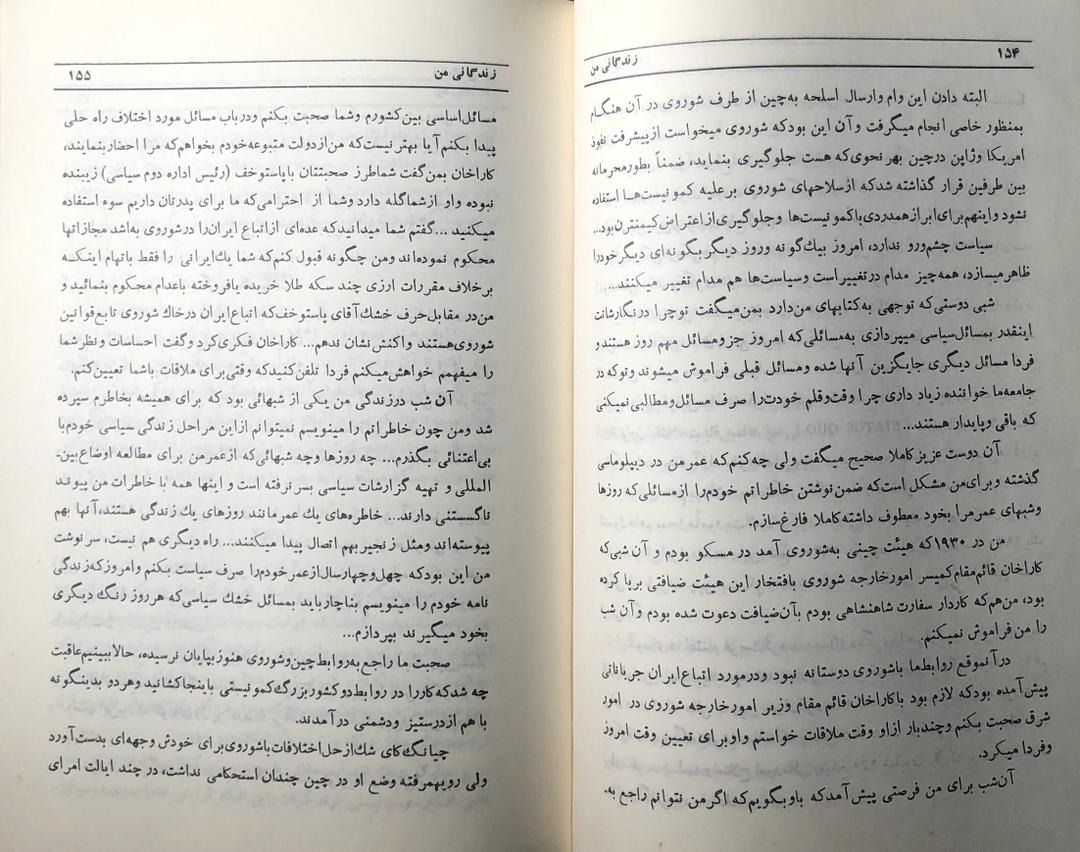 ۱۵۴
زندگانی من
البته دادن این وام وارسال اسلحه به‌چین از طرف شوروی در آن هنگام
بمنظور خاصی انجام میگرفت وآن این بودکه شوروی میخواست ازپیشرفت نفوذ
امریکا وژاپن درچین بهر نحوی‌که هست جلوگیری بنماید، ضمناً بطورمحرمانه
بین طرفین قرار گذاشته شدکه ازسلاحهای شوروی برعلیه کمونیست‌ها استفاده
نشود واینهم‌برای‌ابرازهمدردی‌باکمونیست‌ها وجلوگیری‌ازاعتراض‌کیمنترن‌بود..
سیاست چشم‌ورو ندارد، امروز بیك‌گونه وروز دیگر بگونه‌ای دیگرخودرا
ظاهرمیسازد، همه‌چیز مدام درتغییراست وسیاست‌ها هم مدام تغییر میکنند...
شبی دوستی‌که توجهی به‌کتابهای من‌دارد بمن‌میگفت توچرا درنگارشاتت
اینقدر بمسائل‌سیاسی میپردازی به‌مسائلی‌که امروز جزومسائل مهم روز هستندو
فردا مسائل دیگری جایگزین آنها شده ومسائل قبلی فراموش میشوند وتوکه در
جامعه‌ما خواننده زیاد داری چرا وقت‌وقلم خودت‌را صرف مسائل‌ومطالبی‌نمیکنی
که باقی وپایدار هستند...
آن دوست عزیزکاملا صحیح میگفت ولی چه‌کنم‌که عمرمن در دیپلوماسی
گذشته وبرای‌من مشکل است‌که ضمن‌نوشتن خاطراتم خودم‌را ازمسائلی‌که روزها
وشبهای عمرمرا بخود معطوف داشته‌کاملا فارغ‌سازم.
من در ۱۹۳۰که هیئت چینی به‌شوروی آمد در مسکو بودم و آن شبی‌که
کاراخان قائم‌مقام‌کمیسر امورخارجه شوروی بافتخار این هیئت ضیافتی برپا کرده
بود، من‌هم‌که کاردار سفارت شاهنشاهی بودم بآن‌ضیافت دعوت شده بودم وآن شب
را من‌فراموش نمیکنم.
درآنموقع روابط‌ما باشوروی دوستانه نبود ودرمورد اتباع‌ایران جریاناتی
پیش‌آمده بودکه لازم بود باکاراخان قائم مقام وزیر امورخارجه شوروی در امور
شرق صحبت بکنم وچندبار ازاو وقت ملاقات خواستم واوبرای تعیین وقت امروز
وفردا میکرد.
آن‌شب برای من فرصتی پیش‌آمدکه باوبگویم‌که اگرمن نتوانم راجع به‌-
زندگانی من
۱۵۵
مسائل‌اساسی بین‌کشورم وشما صحبت بکنم ودرباب مسائل مورد اختلاف راه حلی
پیدا بکنم آیا بهتر نیست‌که من‌ازدولت متبوعه‌خودم بخواهم‌که مرا احضاربنمایند،
کاراخان بمن‌گفت شماطرز صحبتتان باپاستوخف (رئیس اداره دوم سیاسی) زیبنده
نبوده واو ازشماگله دارد وشما از احترامی‌که ما برای پدرتان داریم سوء استفاده
میکنید ...گفتم شما میدانیدکه عده‌ای ازاتباع ایران‌را درشوروی به‌اشد مجازاتها
محکوم نموده‌اند ومن چگونه قبول کنم‌که شما یك‌ایرانی را فقط باتهام اینکه
برخلاف مقررات ارزی چند سکه طلا خریده یافروخته باعدام محکوم بنمائید و
من‌در مقابل‌حرف خشك‌آقای پاستوخف‌که اتباع‌ایران درخاك شوروی تابع‌قوانین
شوروی‌هستند واکنش‌نشان ندهم... کاراخان فکری‌کرد وگفت احساسات ونظرشما
را میفهمم خواهش‌میکنم فردا تلفن‌کنیدکه وقتی‌برای ملاقات باشما تعیین‌کنم.
آن شب درزندگی من یکی از شبهائی بود که برای همیشه بخاطرم سپرده
شد ومن چون خاطراتم را مینویسم نمیتوانم ازاین مراحل زندگی سیاسی خودم‌با
بی‌اعتنائی بگذرم... چه روزها وچه شبهائی‌که ازعمرمن برای مطالعه اوضاع‌بین-
المللی و تهیه گزارشات سیاسی بسر نرفته است و اینها همه با خاطرات من پیوند
ناگسستنی دارند... خاطره‌های یك عمر مانند روزهای یك زندگی هستند، آنها بهم
پیوسته‌اند ومثل زنجیر بهم اتصال پیدا میکنند... راه دیگری هم نیست، سرنوشت
من این بودکه چهل‌وچهارسال‌ازعمرخودم‌را صرف سیاست بکنم وامروزکه‌زندگی
نامه خودم را مینویسم بناچارباید بمسائل خشك سیاسی‌که هرروز رنگ دیگری
بخود میگیرند بپردازم...
صحبت ما راجع به‌روابط‌چین‌وشوروی هنوزبپایان نرسیده، حالاببینیم‌عاقبت
چه شدکه‌کاررا در روابط‌دوکشوربزرگ‌کمونیستی باینجاکشانید وهردو بدینگونه
با هم ازدرستیز ودشمنی درآمدند.
چیانگ‌کای شك‌ازحل‌اختلافات‌باشوروی‌برای خودش وجهه‌ای بدست‌آورد
ولی رویهمرفته وضع او در چین چندان استحکامی نداشت، در چند ایالت امرای